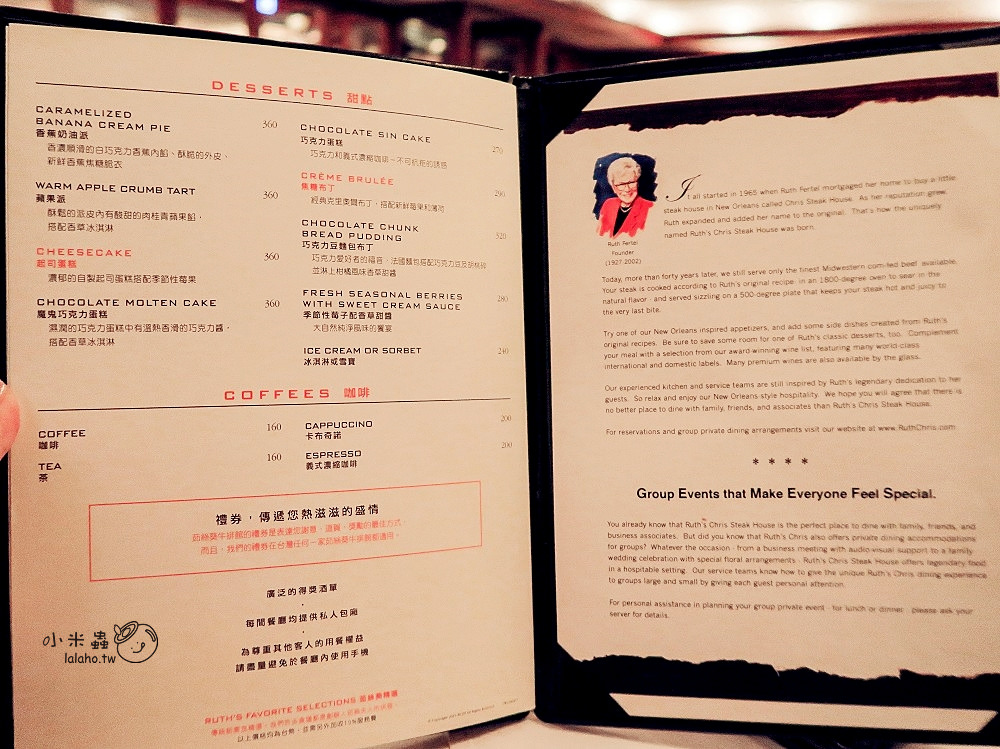 DESSERTS 甜點
CARAMELIZED
BANANA CREAM PIE 360
香蕉奶油派
香濃順滑的白巧克力香蕉內餡、酥脆的外皮、
新鮮香蕉焦糖脆衣
WARM APPLE CRUMB TART 360
蘋果派
酥鬆的派皮內有酸甜的肉桂青蘋果餡，
搭配香草冰淇淋
CHEESECAKE 360
起司蛋糕
濃郁的自製起司蛋糕搭配季節性莓果
CHOCOLATE MOLTEN CAKE 360
魔鬼巧克力蛋糕
濕潤的巧克力蛋糕中有溫熱香滑的巧克力醬，
搭配香草冰淇淋
CHOCOLATE SIN CAKE 270
巧克力蛋糕
巧克力和義式濃縮咖啡－不可抗拒的誘惑
CRÈME BRULÉE 290
焦糖布丁
經典克里奧爾布丁，搭配新鮮莓果和薄荷
CHOCOLATE CHUNK
BREAD PUDDING 320
巧克力豆麵包布丁
巧克力愛好者的福音，法國麵包搭配巧克力豆及胡桃碎
並淋上柑橘風味香草甜醬
FRESH SEASONAL BERRIES 280
WITH SWEET CREAM SAUCE
季節性莓子配香草甜醬
大自然純淨風味的饗宴
ICE CREAM OR SORBET 240
冰淇淋或雪寶
COFFEES 咖啡
COFFEE 160
咖啡
TEA 160
茶
CAPPUCCINO 200
卡布奇諾
ESPRESSO 200
義式濃縮咖啡
禮券，傳遞您熱滋滋的盛情
茹絲葵牛排館的禮券是表達您謝意、道賀、獎勵的最佳方式
而且，我們的禮券在台灣任何一家茹絲葵牛排館都適用。
廣泛的得獎酒單
·
每間餐廳均提供私人包廂
·
為尊重其他客人的用餐權益
請盡量避免於餐廳內使用手機
RUTH'S FAVORITE SELECTIONS 茹絲葵精選
以上價格均為台幣，並需另外加成10%服務費
小米蟲
lalaho.tw
Ruth Fertel
Founder
(1927-2002)
It all started in 1965 when Ruth Fertel mortgaged her home to buy a little
steak house in New Orleans called Chris Steak House. As her reputation grew,
Ruth expanded and added her name to the original. That's how the uniquely
named Ruth's Chris Steak House was born.
Today, more than forty years later, we still serve only the finest Midwestern corn-fed beef available.
Your steak is cooked according to Ruth's original recipe: in an 1800-degree oven to sear in the
natural flavor - and served sizzling on a 500-degree plate that keeps your steak hot and juicy to
the very last bite.
Try one of our New Orleans inspired appetizers, and add some side dishes created from Ruth's
original recipes. Be sure to save some room for one of Ruth's classic desserts, too. Complement
your meal with a selection from our award-winning wine list, featuring many world-class
international and domestic labels. Many premium wines are also available by the glass.
Our experienced kitchen and service teams are still inspired by Ruth's legendary dedication to her
guests. So relax and enjoy our New Orleans-style hospitality. We hope you will agree that there is
no better place to dine with family, friends, and associates than Ruth's Chris Steak House.
For reservations and group private dining arrangements visit our website at www.RuthChris.com
* * * *
Group Events that Make Everyone Feel Special.
You already know that Ruth's Chris Steak House is the perfect place to dine with family, friends, and
business associates. But did you know that Ruth's Chris also offers private dining accommodations
for groups? Whatever the occasion - from a business meeting with audio-visual support to a family
wedding celebration with special floral arrangements - Ruth's Chris Steak House offers legendary food
in a hospitable setting. Our service teams know how to give the unique Ruth's Chris dining experience
to groups large and small by giving each guest personal attention.
For personal assistance in planning your group private event - for lunch or dinner - please ask your
server for details.